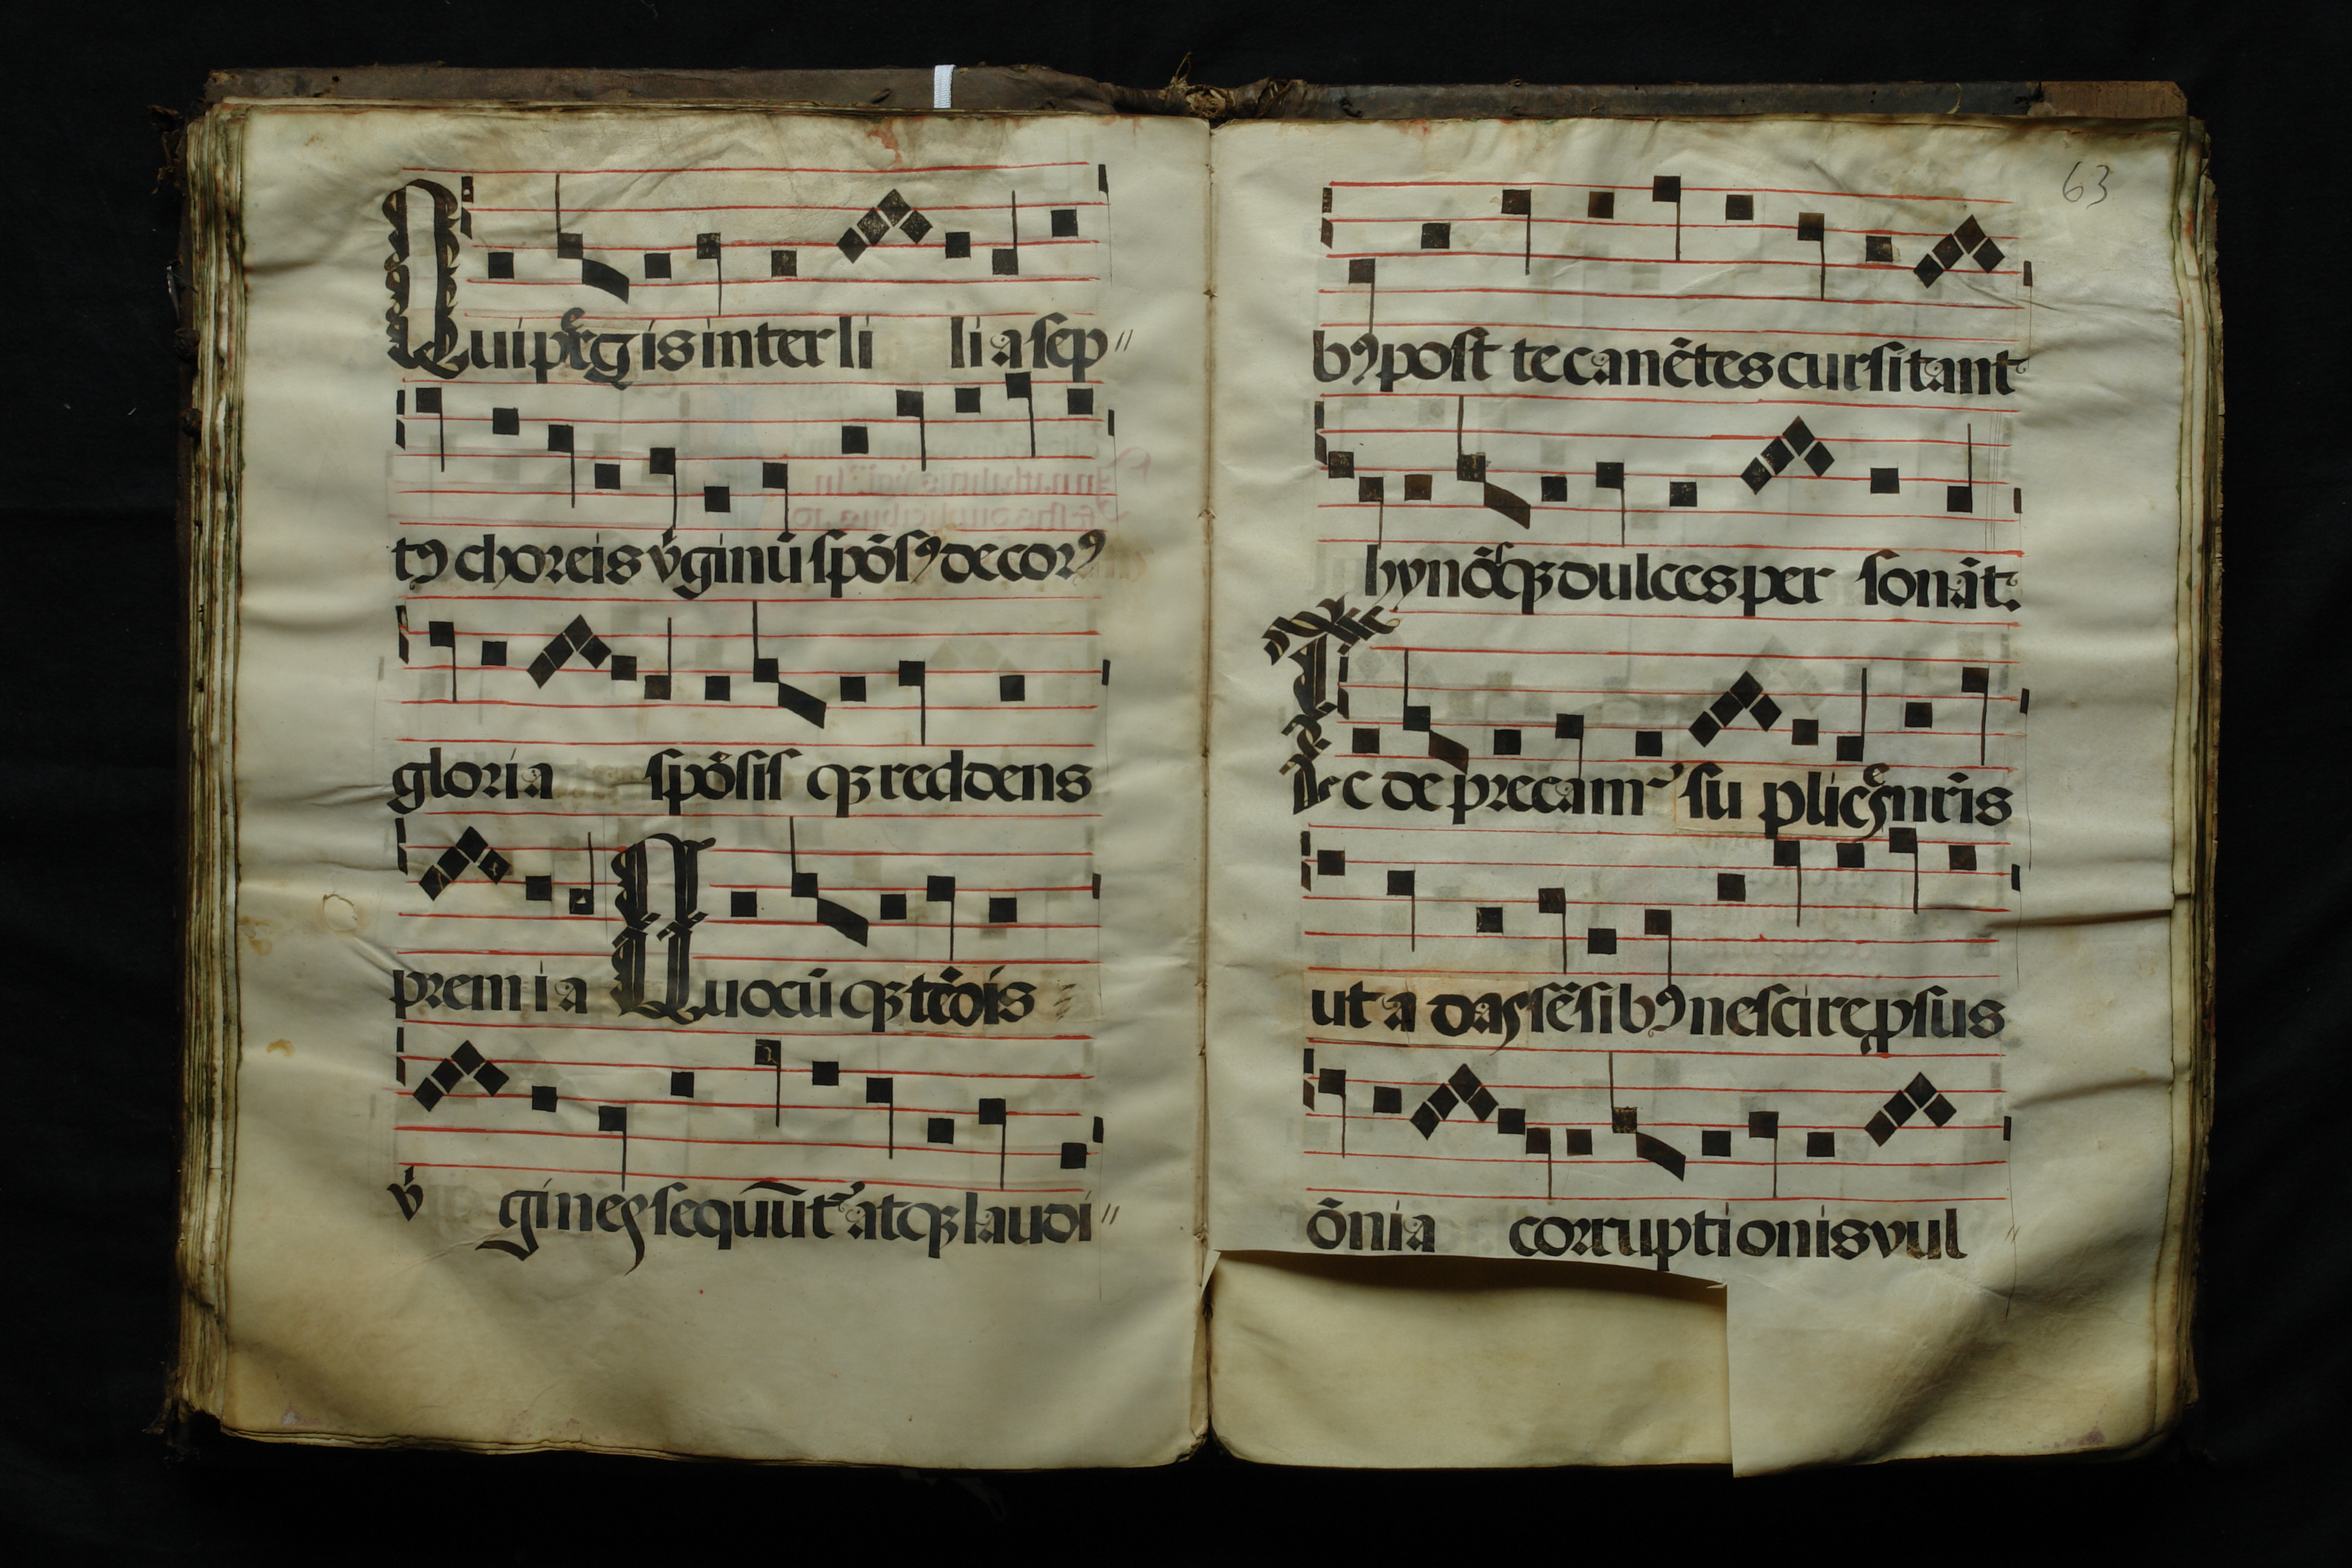 Qui pergis inter li li a sep //
tꝰ choreis v̇ginū spōsꝰ decorꝰ
gloria spōsis qꝫ reddens
premia Quocūqꝫ tēdis
v̇ gines sequūt᷑ atqꝫ laudi //
63
bꝰ post te canētes cursitant
hynōsqꝫ dulces per sonāt.
Te deprecam᷑ su plicēs nr̄is
ut a das sēsibꝰ nescire ꝓsus
ōnia corruptionis vul //